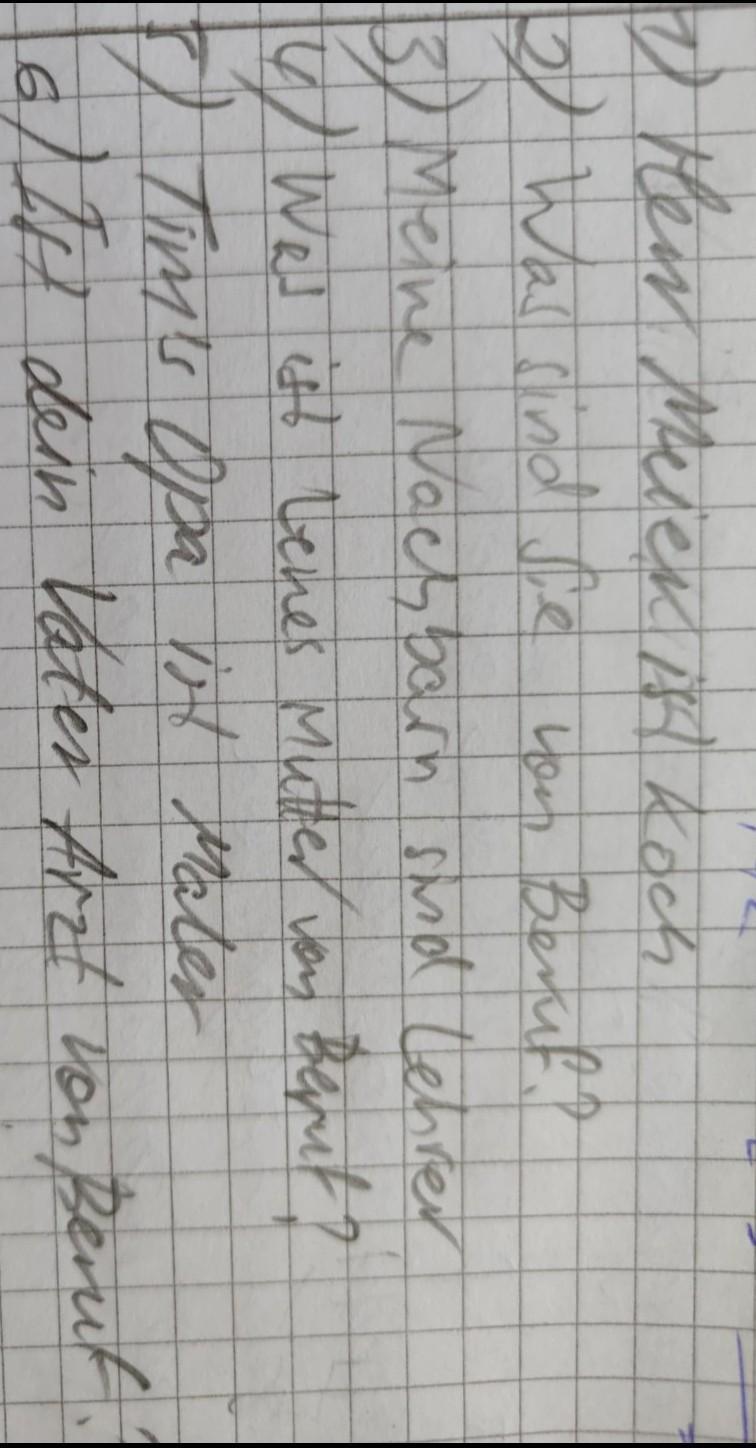 1) Herr Meiek ist Koch
2) Was sind Sie von Beruf?
3) Meine Nachbarn sind Lehrer
4) Was ist Lenes Mutter von Beruf?
5) Tim's Opa ist Maler
6) Ist dein Vater Arzt von Beruf?